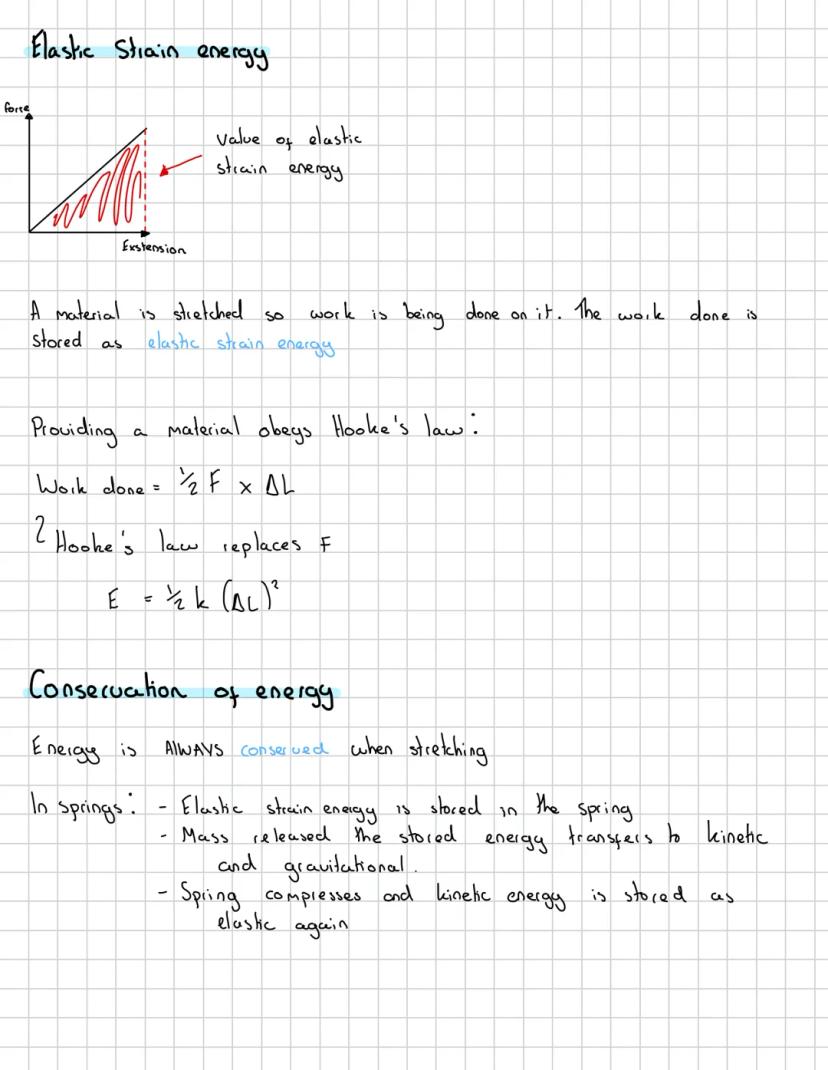 Elastic Strain energy
force
value of elastic
strain energy
Exstension
A material is stretched so work is being done on it. The work done is
stored as elastic strain energy
Providing a material obeys Hooke's law:
Work done = ½ F × ΔL
Hooke's law replaces F
E = ½ k (ΔL)²
Conservation of energy
Energy is AlWAYS conserved when stretching
In springs: - Elastic strain energy is stored in the spring
- Mass released the stored energy transfers to kinetic
and gravitational.
- Spring compresses and kinetic energy is stored as
elastic again